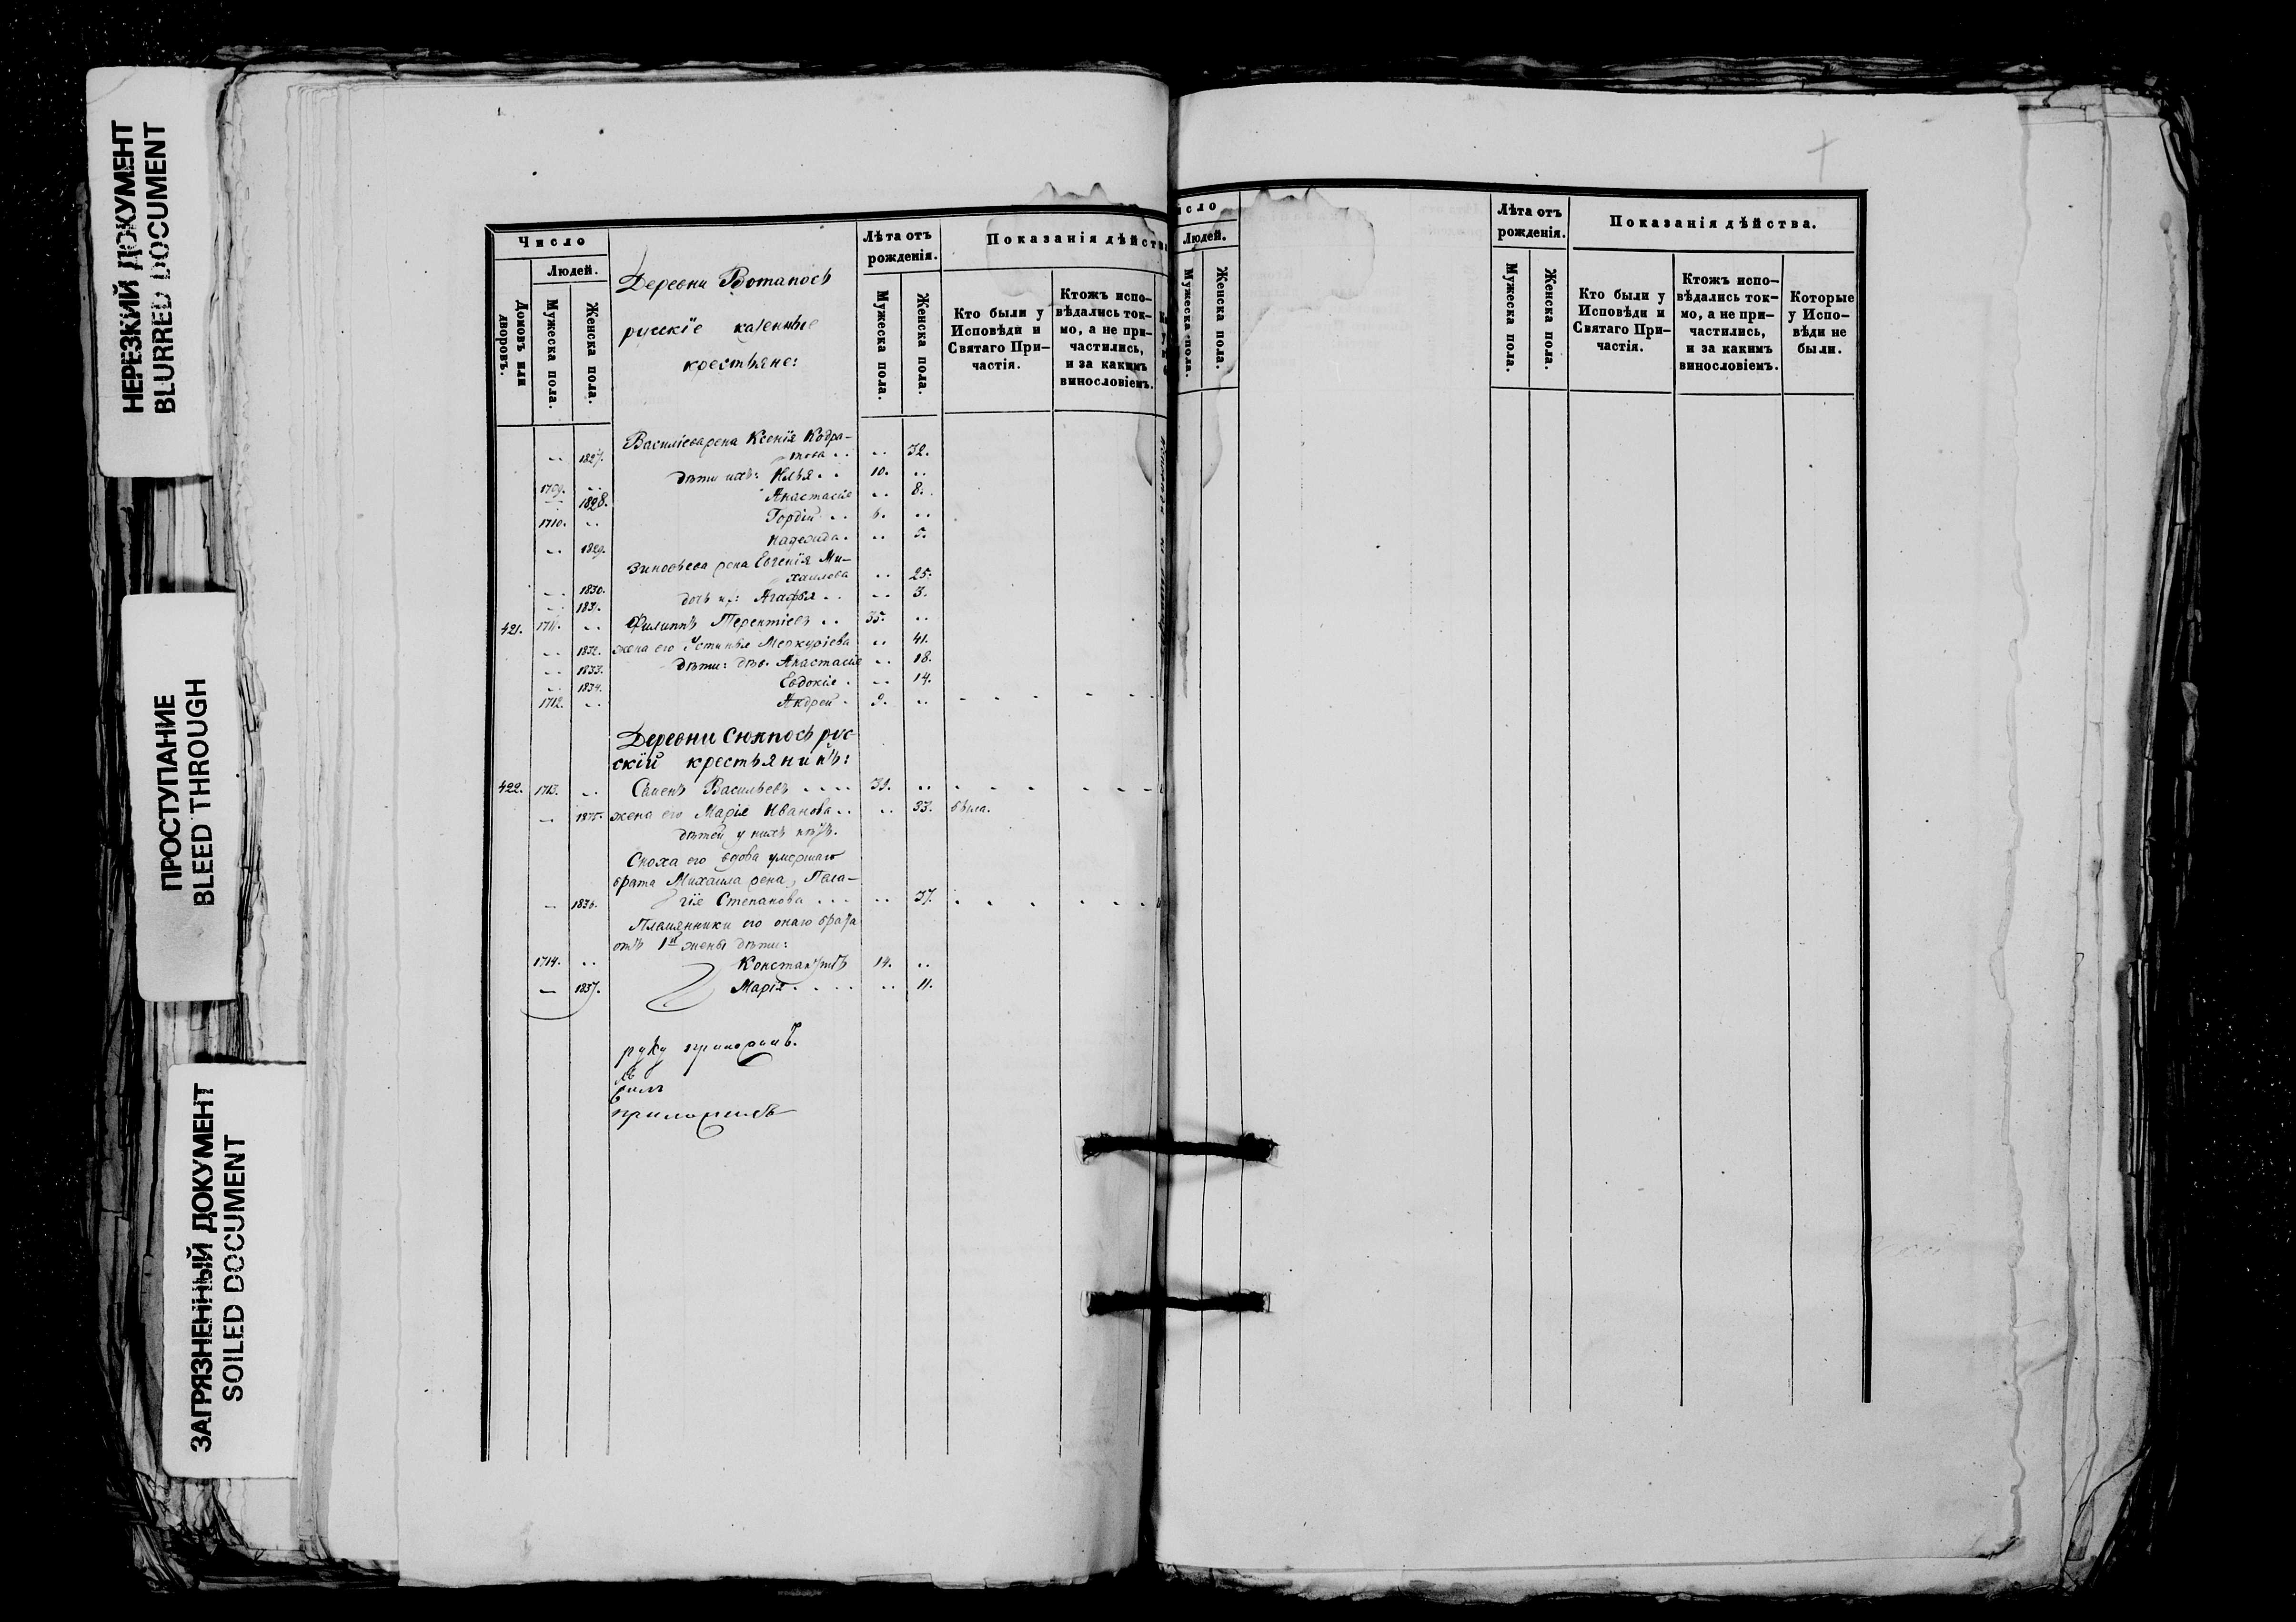 НЕРЕЗКИЙ ДОКУМЕНТ
BLURRED DOCUMENT
ПРОСТУПАНИЕ
BLEED THROUGH
ЗАГРЯЗНЕННЫЙ ДОКУМЕНТ
SOILED DOCUMENT
Число
Людей.
Домовъ или дворовъ.
Мужеска пола.
Женска пола.
Деревни Вотанось
русскіе казенные
крестьяне:
Лѣта отъ
рожденія.
Мужеска пола.
Женска пола.
Показанія дѣйств
Кто были у
Исповѣди и
Святаго При-
частія.
Ктожъ испо-
вѣдались ток-
мо, а не при-
частились,
и за какимъ
винословіемъ.
Василіева жена Ксенія Кодра-
.. 1827. това .. .. 32.
1709. .. дѣти ихъ: Илья .. 10. ..
— 1828. Анастасія .. 8.
1710. .. Гордій .. 6. ..
.. 1829. Надежда. .. 5.
Зиновьева жена Евгенія Ми-
.. 1830. хаилова .. 25.
.. 1831. дочь их: Агафья .. .. 3.
421. 1711. .. Филиппъ Терентіевъ .. 35. ..
.. 1832. жена его Устинья Меркуріева .. 41.
.. 1833. дѣти: дѣв. Анастасія .. 18.
.. 1834. Евдокія . .. 14.
1712. .. Андрей . 9. .. - - - - -
Деревни Сюкпось рус-
скій крестьянинъ:
422. 1713. .. Саменъ Васильевъ .... 39. .. - - - - -
— 1835. жена его Марія Иванова .. .. 33. была.
дѣтей у нихъ нѣтъ.
Сноха его вдова умершаго
брата Михаила жена, Пела-
— 1836. гія Степанова ... .. 37. . . . . .
Племянники его онаго брата
отъ 1й жены дѣти:
1714. .. Константинъ 14. ..
— 1837. Марія .... .. 11.
руку приложилъ.
приложилъ
исло
Людей.
Мужеска пола.
Женска пола.
Лѣта отъ
рожденія.
Мужеска пола.
Женска пола.
Показанія дѣйства.
Кто были у
Исповѣди и
Святаго При-
частія.
Ктожъ испо-
вѣдались ток-
мо, а не при-
частились,
и за какимъ
винословіемъ.
Которые
у Испо-
вѣди не
были.